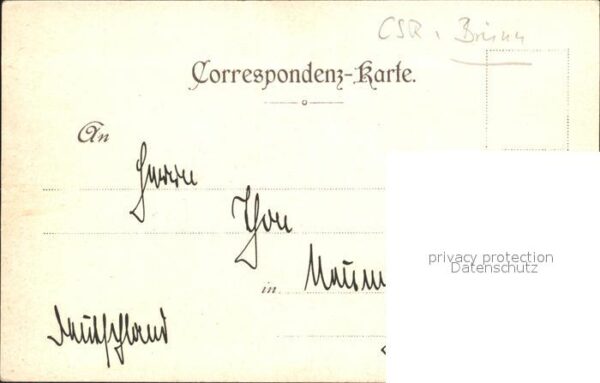 CSR, Brünn
Correspondenz-Karte.
An
Herrn
Thon
in
Deutschland
privacy protection
Datenschutz